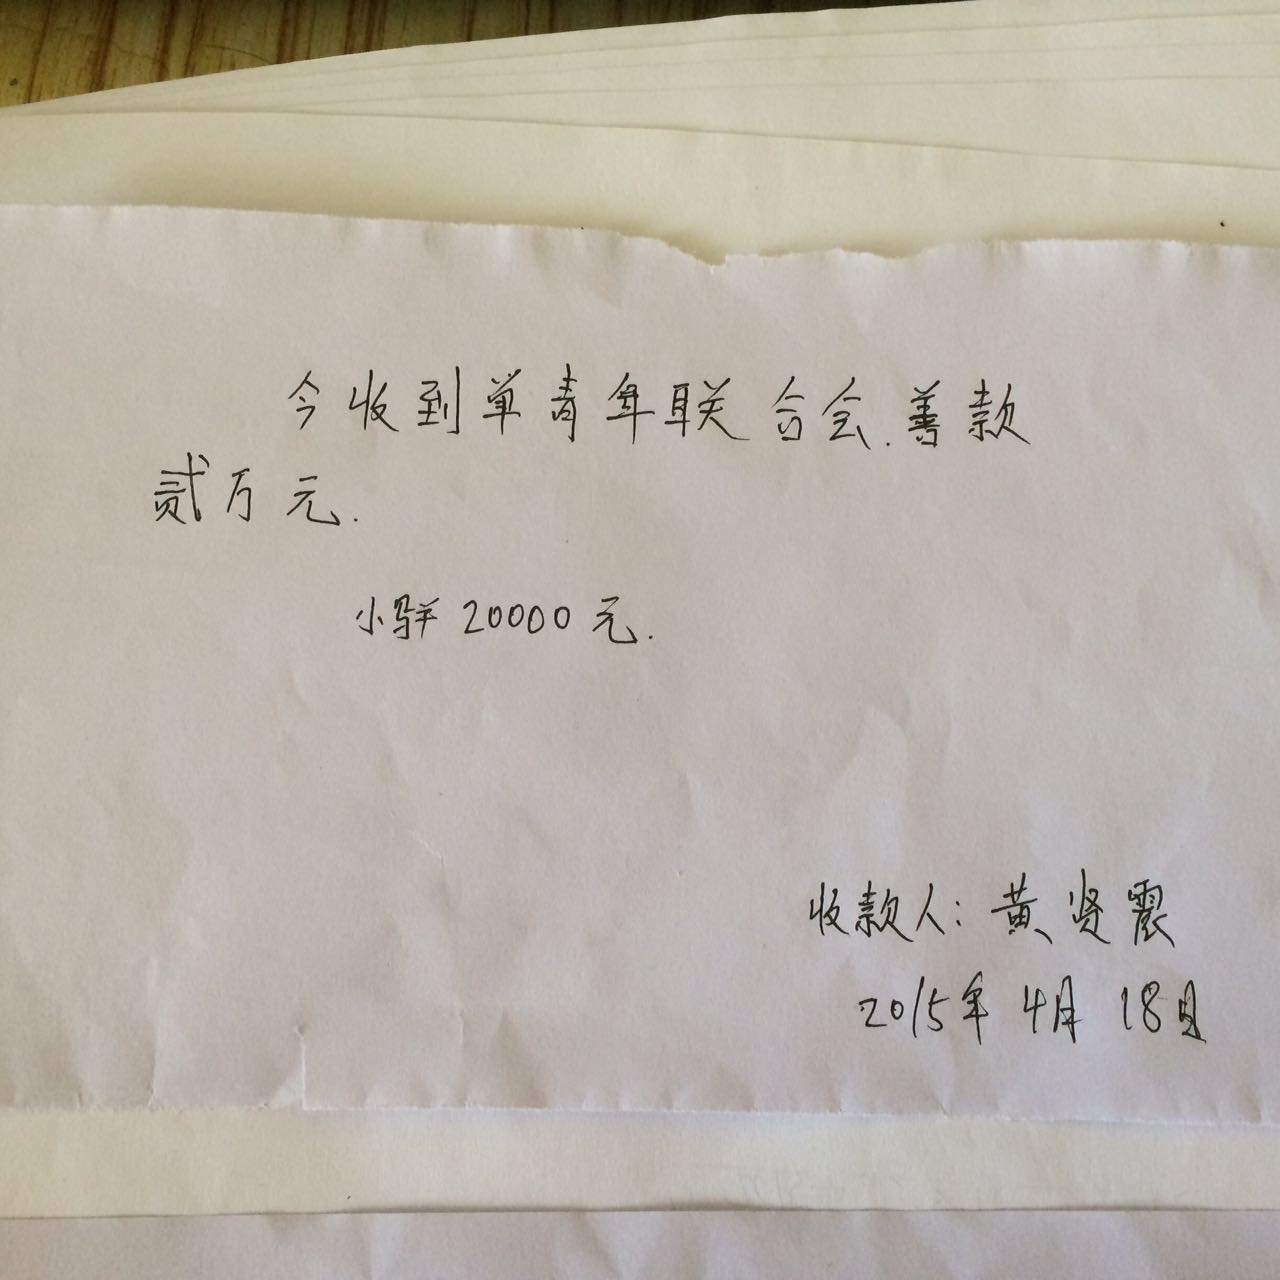 今收到单青年联合会.善款
贰万元.
小写 20000 元.
收款人: 黄贤震
2015年 4月 18日